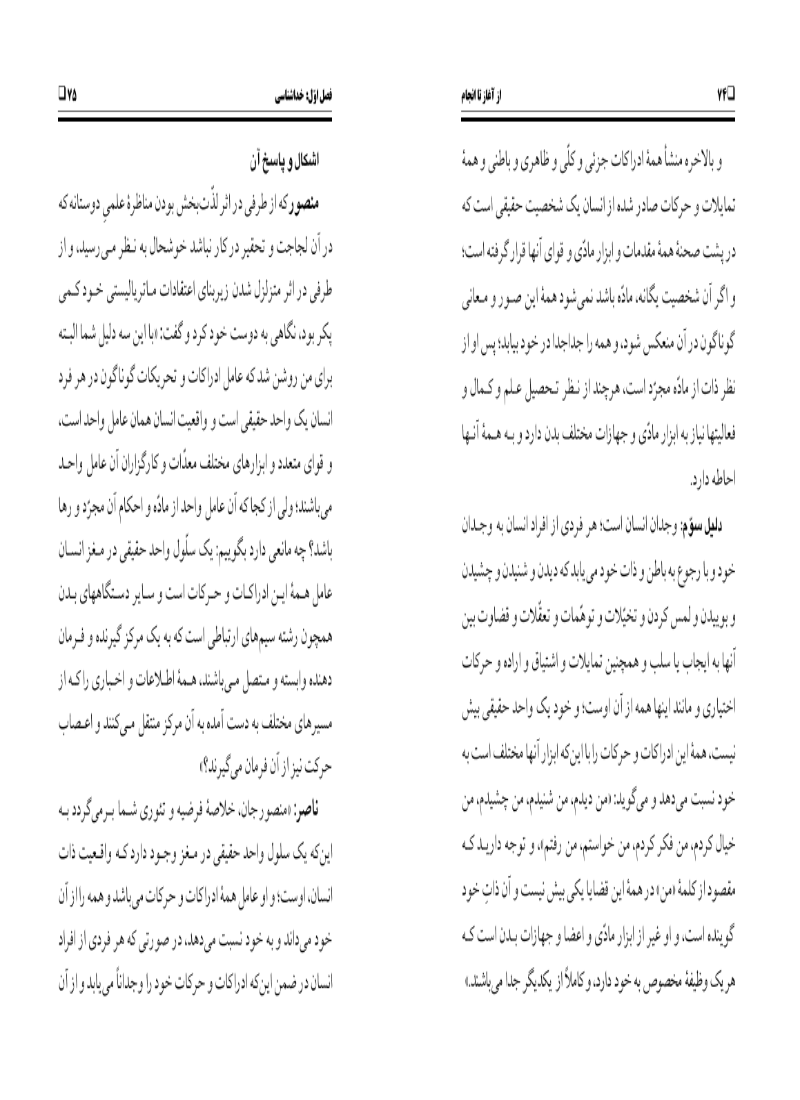 ❑۷۴ از آغاز تا انجام
و بالاخره منشأ همهٔ ادراکات جزئی و کلّی و ظاهری و باطنی و همهٔ
تمایلات و حرکات صادر شده از انسان یک شخصیت حقیقی است که
در پشت صحنهٔ همهٔ مقدمات و ابزار مادّی و قوای آنها قرار گرفته است؛
و اگر آن شخصیت یگانه، مادّه باشد نمی‌شود همهٔ این صور و معانی
گوناگون در آن منعکس شود، و همه را جداجدا در خود بیابد؛ پس او از
نظر ذات از مادّه مجرّد است، هرچند از نظر تحصیل علم و کمال و
فعالیتها نیاز به ابزار مادّی و جهازات مختلف بدن دارد و به همهٔ آنها
احاطه دارد.
دلیل سوّم: وجدان انسان است؛ هر فردی از افراد انسان به وجدان
خود و با رجوع به باطن و ذات خود می‌یابد که دیدن و شنیدن و چشیدن
و بوییدن و لمس کردن و تخیّلات و توهّمات و تعقّلات و قضاوت بین
آنها به ایجاب یا سلب و همچنین تمایلات و اشتیاق و اراده و حرکات
اختیاری و مانند اینها همه از آن اوست؛ و خود یک واحد حقیقی بیش
نیست، همهٔ این ادراکات و حرکات را با این‌که ابزار آنها مختلف است به
خود نسبت می‌دهد و می‌گوید: «من دیدم، من شنیدم، من چشیدم، من
خیال کردم، من فکر کردم، من خواستم، من رفتم»، و توجه دارید که
مقصود از کلمهٔ «من» در همهٔ این قضایا یکی بیش نیست و آن ذاتِ خود
گوینده است، و او غیر از ابزار مادّی و اعضا و جهازات بدن است که
هر یک وظیفهٔ مخصوص به خود دارد، و کاملاً از یکدیگر جدا می‌باشند.»
فصل اوّل: خداشناسی ۷۵❑
اشکال و پاسخ آن
منصور که از طرفی در اثر لذّت‌بخش بودن مناظرهٔ علمیِ دوستانه که
در آن لجاجت و تحقیر در کار نباشد خوشحال به نظر می‌رسید، و از
طرفی در اثر متزلزل شدن زیربنای اعتقادات ماتریالیستی خود کمی
پکر بود، نگاهی به دوست خود کرد و گفت: «با این سه دلیل شما البته
برای من روشن شد که عامل ادراکات و تحریکات گوناگون در هر فرد
انسان یک واحد حقیقی است و واقعیت انسان همان عامل واحد است،
و قوای متعدد و ابزارهای مختلف معدّات و کارگزاران آن عامل واحد
می‌باشند؛ ولی از کجا که آن عامل واحد از مادّه و احکام آن مجرّد و رها
باشد؟ چه مانعی دارد بگوییم: یک سلّول واحد حقیقی در مغز انسان
عامل همهٔ این ادراکات و حرکات است و سایر دستگاههای بدن
همچون رشته سیم‌های ارتباطی است که به یک مرکز گیرنده و فرمان
دهنده وابسته و متصل می‌باشند، همهٔ اطلاعات و اخباری را که از
مسیرهای مختلف به دست آمده به آن مرکز منتقل می‌کنند و اعصاب
حرکت نیز از آن فرمان می‌گیرند؟»
ناصر: «منصورجان، خلاصهٔ فرضیه و تئوری شما برمی‌گردد به
این‌که یک سلول واحد حقیقی در مغز وجود دارد که واقعیت ذات
انسان، اوست؛ و او عامل همهٔ ادراکات و حرکات می‌باشد و همه را از آن
خود می‌داند و به خود نسبت می‌دهد، در صورتی که هر فردی از افراد
انسان در ضمن این‌که ادراکات و حرکات خود را وجداناً می‌یابد و از آن